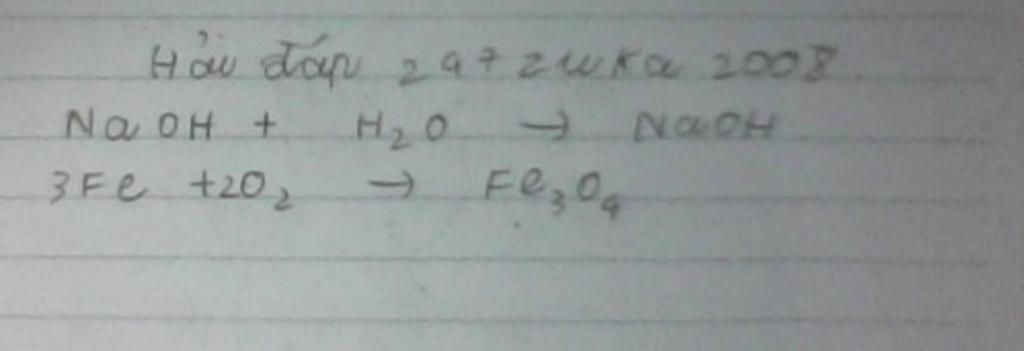 Hỏi đáp 247 zuka 2008
NaOH + H₂O → NaOH
3Fe +2O₂ → Fe₃O₄